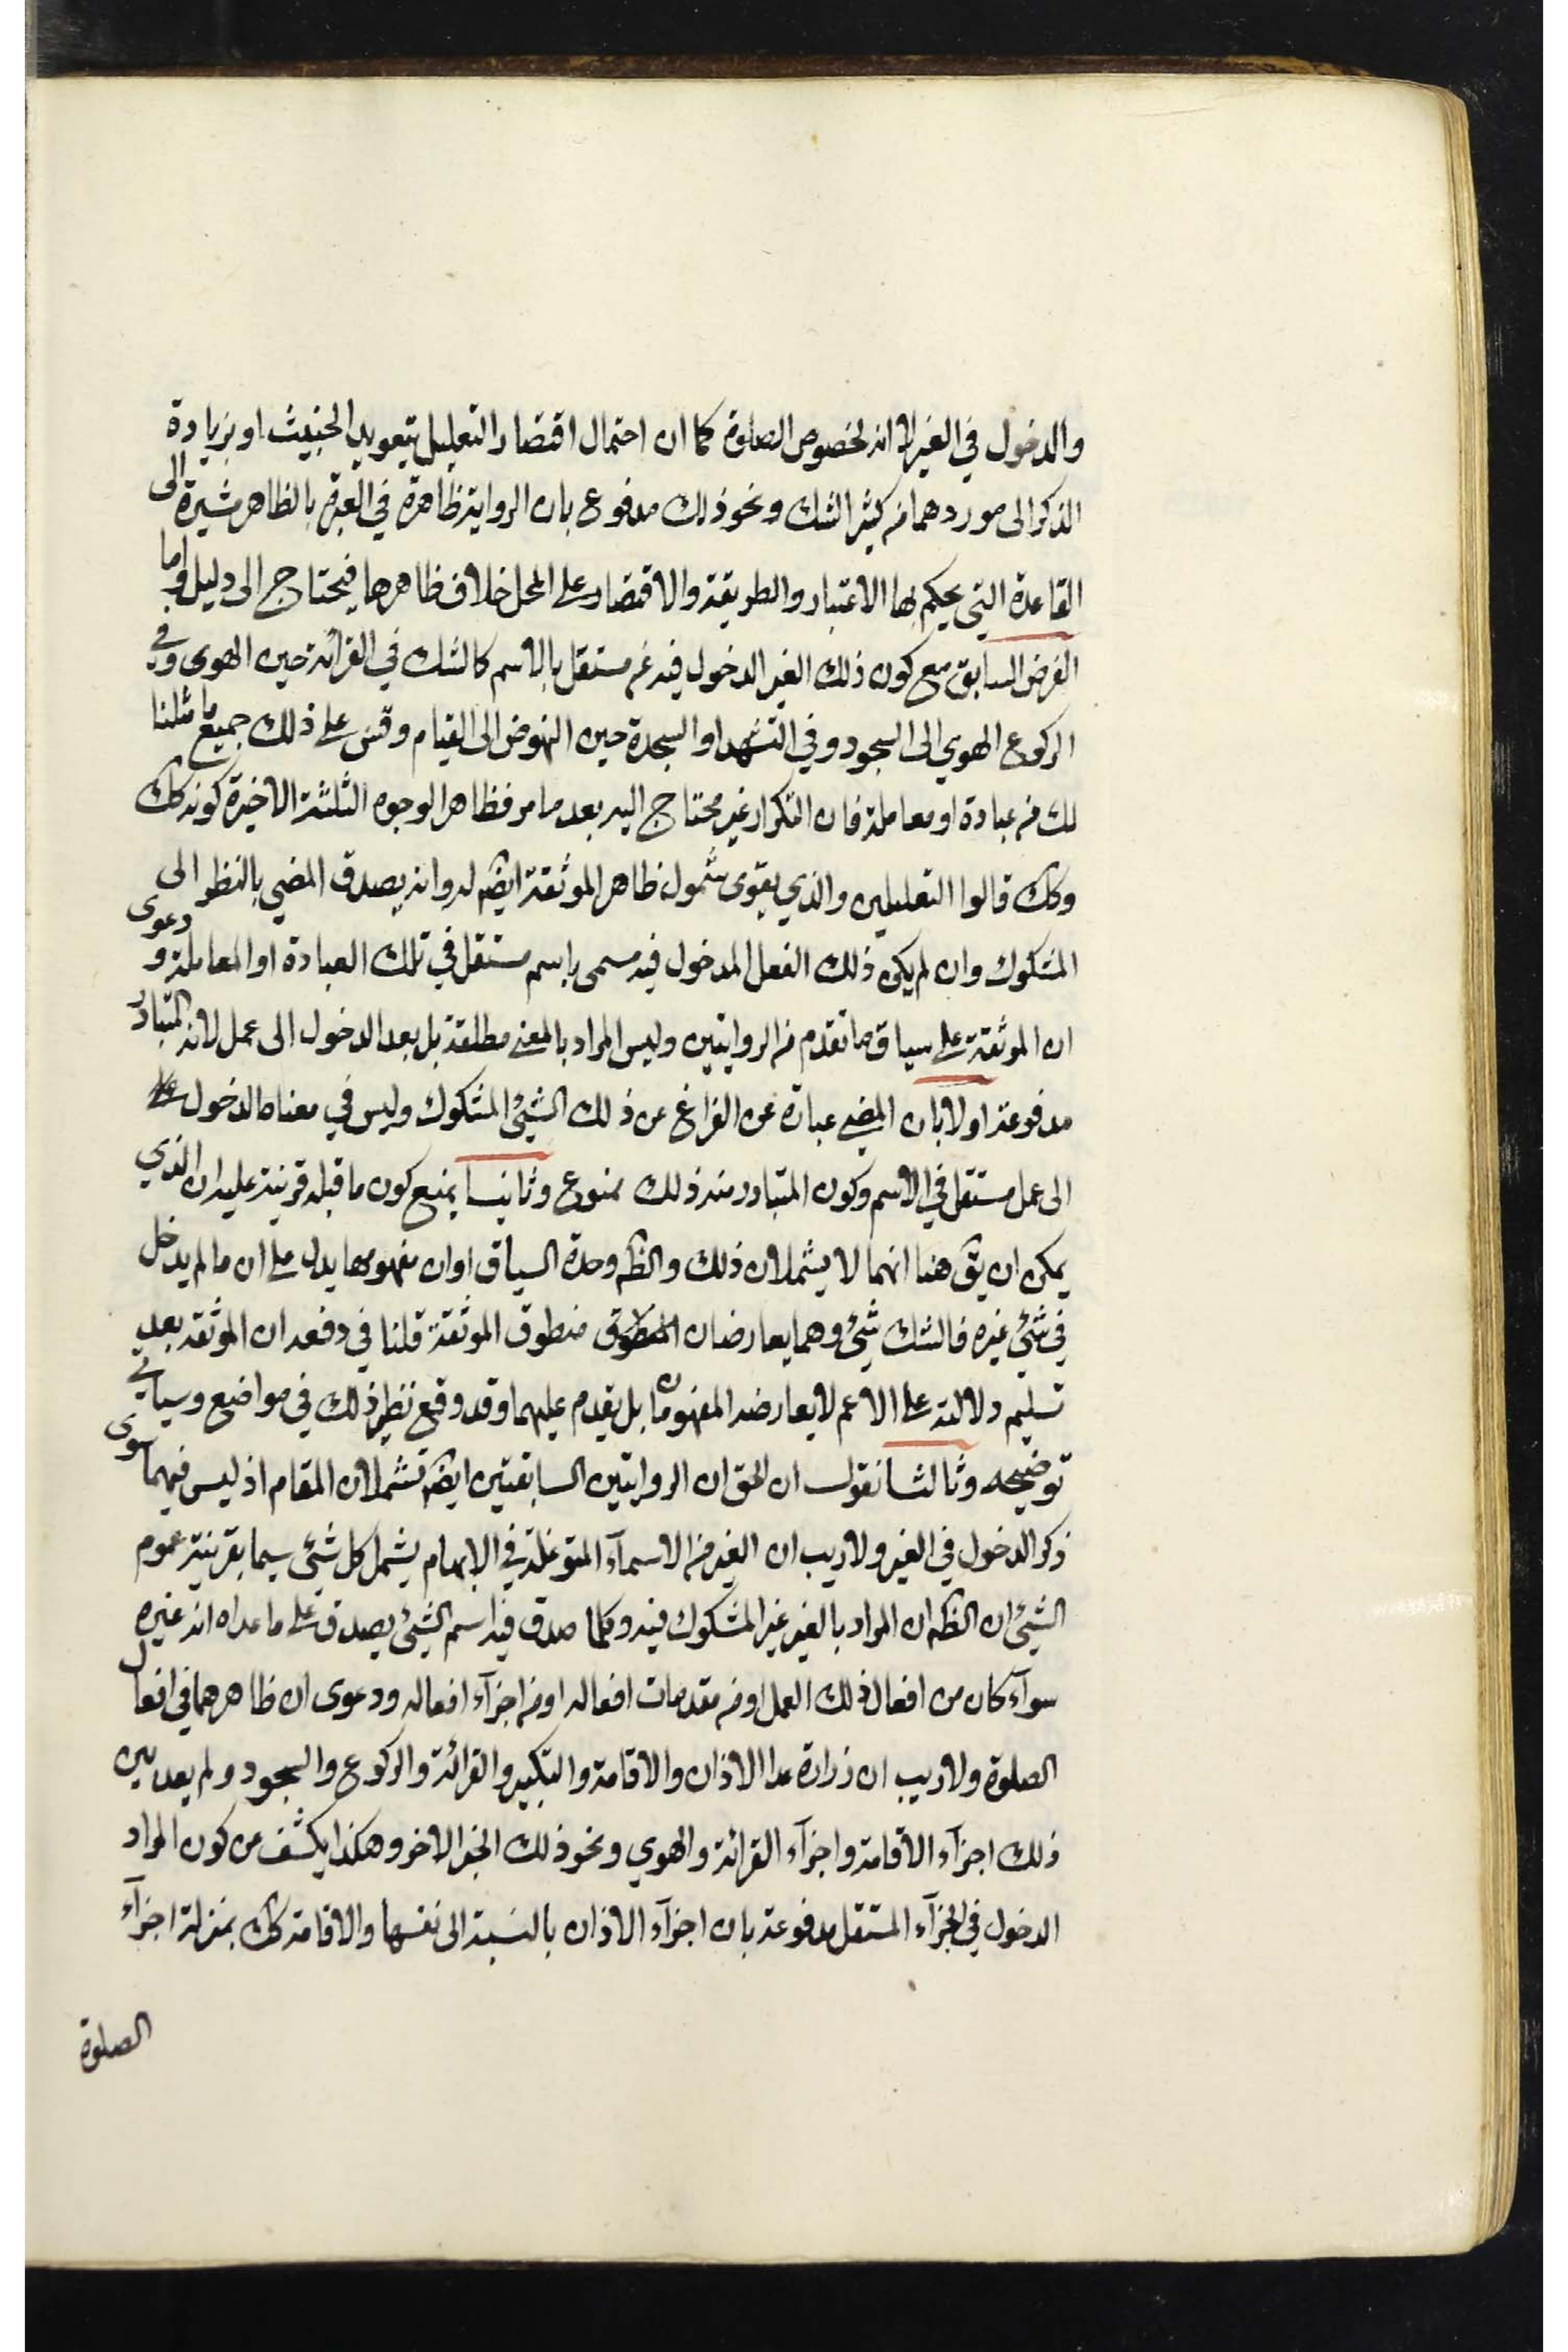 والدخول في الغير لا انه لخصوص الصلوة كما ان احتمال اقتصار التعليل بتعويد الخبيث او بزيادة
الذكر الى موردهما من كثير الشك ونحو ذلك مدفوع بان الرواية ظاهرة في العبرة بالظاهر مشيرة الى
القاعدة التي يحكم بها الاعتبار والطريقة والاقتصار على المحل خلاف ظاهرها فيحتاج الى دليل واما
الفرض السابق مع كون ذلك الغير الدخول فيه غير مستقل بالاسم كالشك في القرائة حين الهوى وفي
الركوع الهوي الى السجود وفي التشهد او السجدة حين النهوض الى القيام وقس على ذلك جميع ما مثلنا
لك من عبادة او معاملة فان التكرار غير محتاج اليه بعد ما مر فظاهر الوجوه الثلثة الاخيرة كونه كك
وكك قالوا التعليلين والذي يقوى شمول ظاهر الموثقة ايضا له وانه يصدق المضي بالنظر الى
المشكوك وان لم يكن ذلك الفعل المدخول فيه مسمى باسم مستقل في تلك العبادة او المعاملة ودعوى
ان الموثقة على سياق ما تقدم من الروايتين وليس المراد بالمضي مطلقة بل بعد الدخول الى عمل لانه المتبادر
مدفوعة اولا بان المضي عبارة عن الفراغ عن ذلك الشيئ المشكوك وليس في معناه الدخول
الى عمل مستقل في الاسم وكون المتبادر منه ذلك ممنوع وثانيا بمنع كون ما قبله قرينة عليه ان الذي
يمكن ان يق هنا انهما لا يشملان ذلك والظ وحدة السياق او ان مفهومها يدل على ان ما لم يدخل
في شيئ غيره فالشك شيئ وهما يعارضان منطوق الموثقة قلنا في دفعه ان الموثقة بعد
تسليم دلالته على الاعم لا يعارضه المفهومان بل يقدم عليهما وقد وقع نظير ذلك في مواضع وسياتي
توضيحه وثالثا نقول ان الحق ان الروايتين السابقتين ايضا تشملان المقام اذ ليس فيهما سوى
ذكر الدخول في الغير ولا ريب ان الغير من الاسمآء المتوغلة في الابهام يشمل كل شيئ سيما بقرينة عموم
الشيئ ان الظ ان المراد بالغير غير المشكوك فيه وكلما صدق فيه اسم الشيئ يصدق على ما عداه انه غيره
سوآء كان من افعال ذلك العمل او من مقدمات افعاله او من اجزآء افعاله ودعوى ان ظاهرهما في افعال
الصلوة ولا ريب ان زرارة عدا الاذان والاقامة والتكبير والقرائة والركوع والسجود ولم يعد بين
ذلك اجزآء الاقامة واجزآء القرائة والهوي ونحو ذلك الخبر الاخر وهكذا يكشف من كون المراد
الدخول في الجزآء المستقل مدفوعة بان اجزآء الاذان بالنسبة الى نفسها والاقامة كك بمنزلة اجزآء
الصلوة